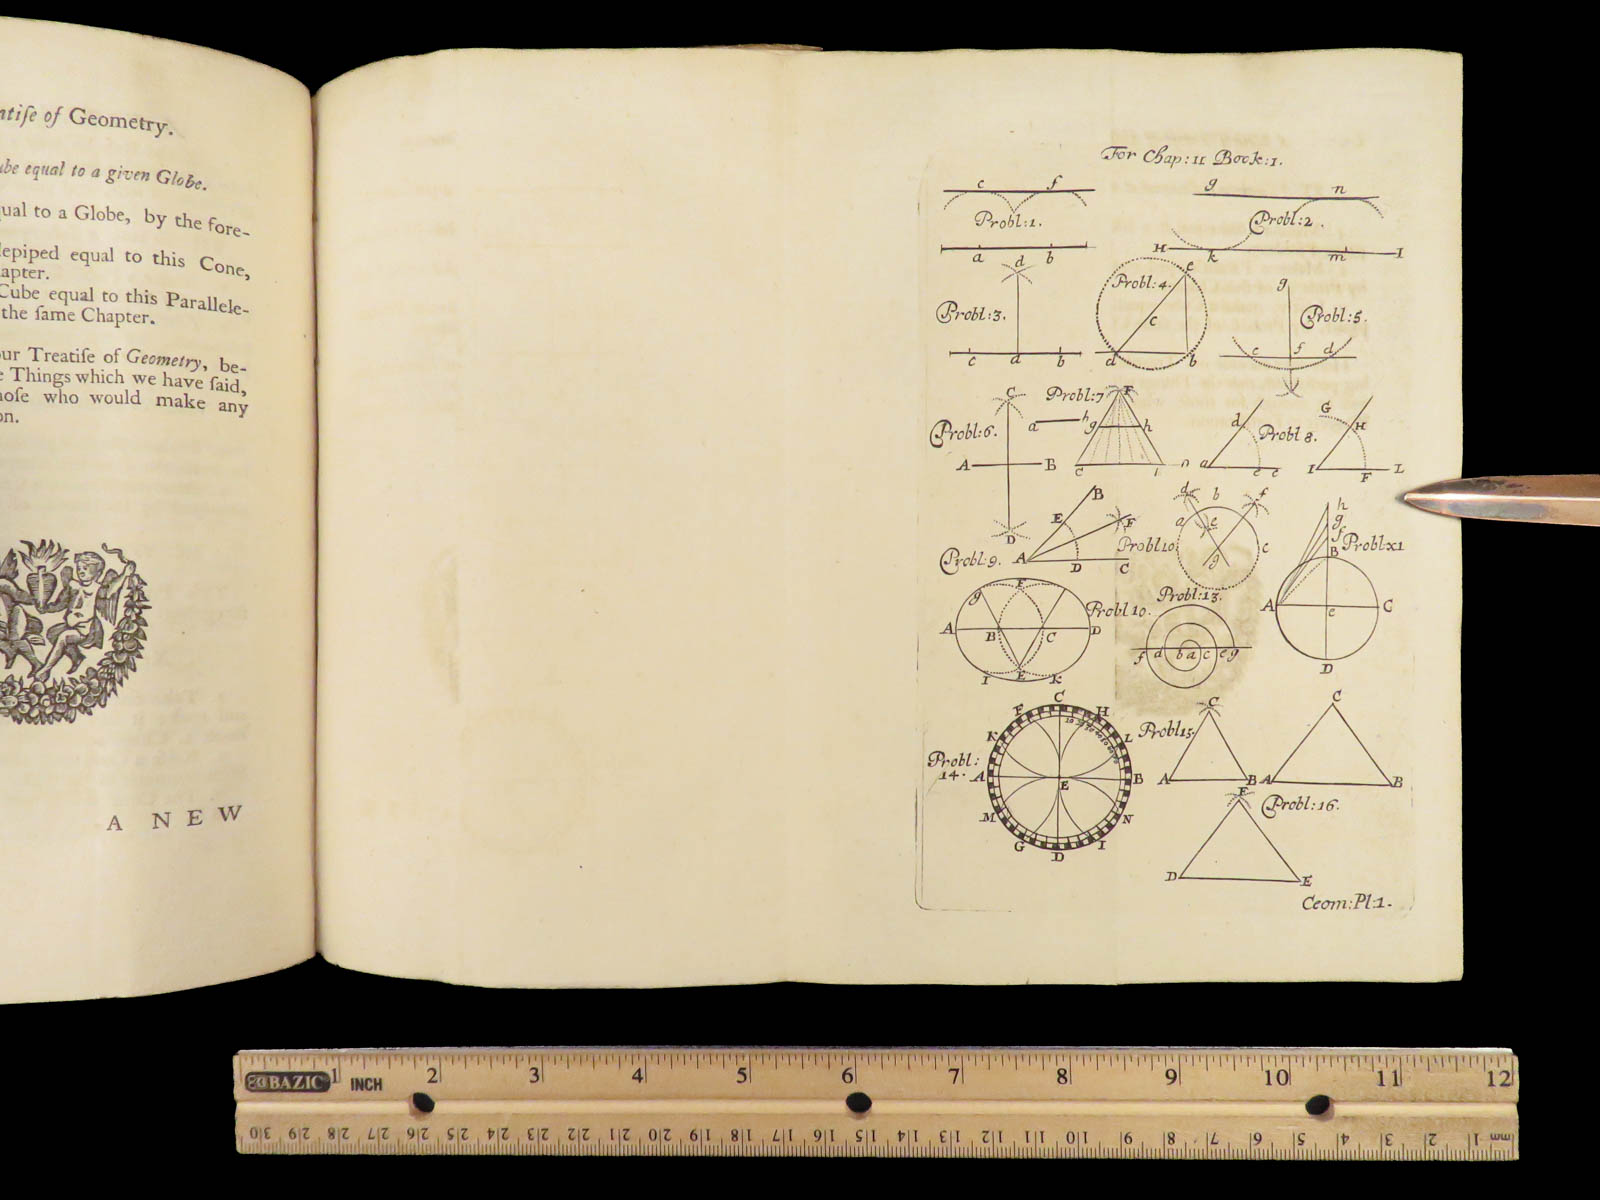 atiſe of Geometry.
ube equal to a given Globe.
ual to a Globe, by the fore-
lepiped equal to this Cone,
apter.
Cube equal to this Parallele-
the ſame Chapter.
our Treatiſe of Geometry, be-
e Things which we have ſaid,
hoſe who would make any
on.
A NEW
For Chap: 11 Book: 1.
c f
g n
Probl: 1.
Probl: 2.
H I
a b
k m
d
e
g
Probl: 3.
Probl: 4.
c
Probl: 5.
c a b
d b
c f d
C
Probl: 7
F
a h
g h
Probl: 6.
A B
C i n
D
d
Probl 8.
a e c
G
H
I F L
B
E
F
Probl: 9. A D C
d b f
a e
Probl 10
g
c
h
g
f
B
Probl: x1
A e C
D
F
g
A B C D
Probl 10.
I E K
Probl: 13.
f d b a c e g
C
F H
K L
Probl: 14.
A E B
10 20 30 40 50 60 70 80
M N
G D I
Probl 15.
C
A B
C
A B
F
Probl: 16.
D E
Geom: Pl: 1.
BAZIC
1 INCH 2 3 4 5 6 7 8 9 10 11 12
30 29 28 27 26 25 24 23 22 21 20 19 18 17 16 15 14 13 12 11 10 9 8 7 6 5 4 3 2 1 mm